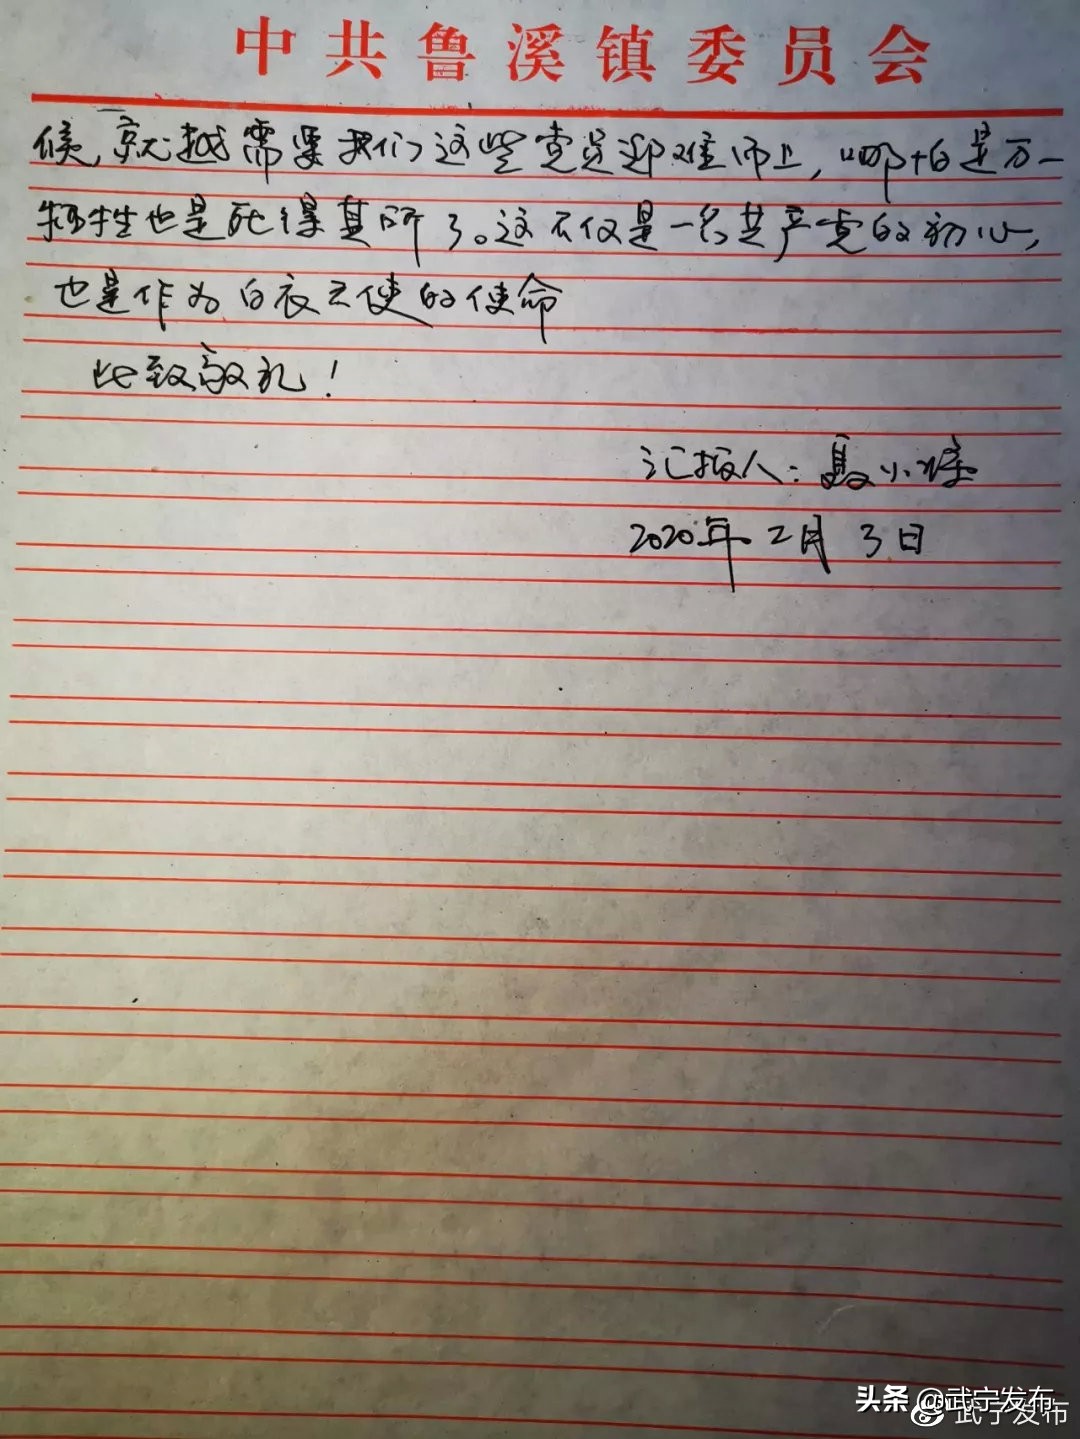 中共鲁溪镇委员会
候，就越需要我们这些党员迎难而上，哪怕是万一
牺牲也是死得其所了。这不仅是一名共产党的初心，
也是作为白衣天使的使命
此致敬礼！
汇报人：聂小
2020年2月3日
头条 @武宁发布
武宁发布